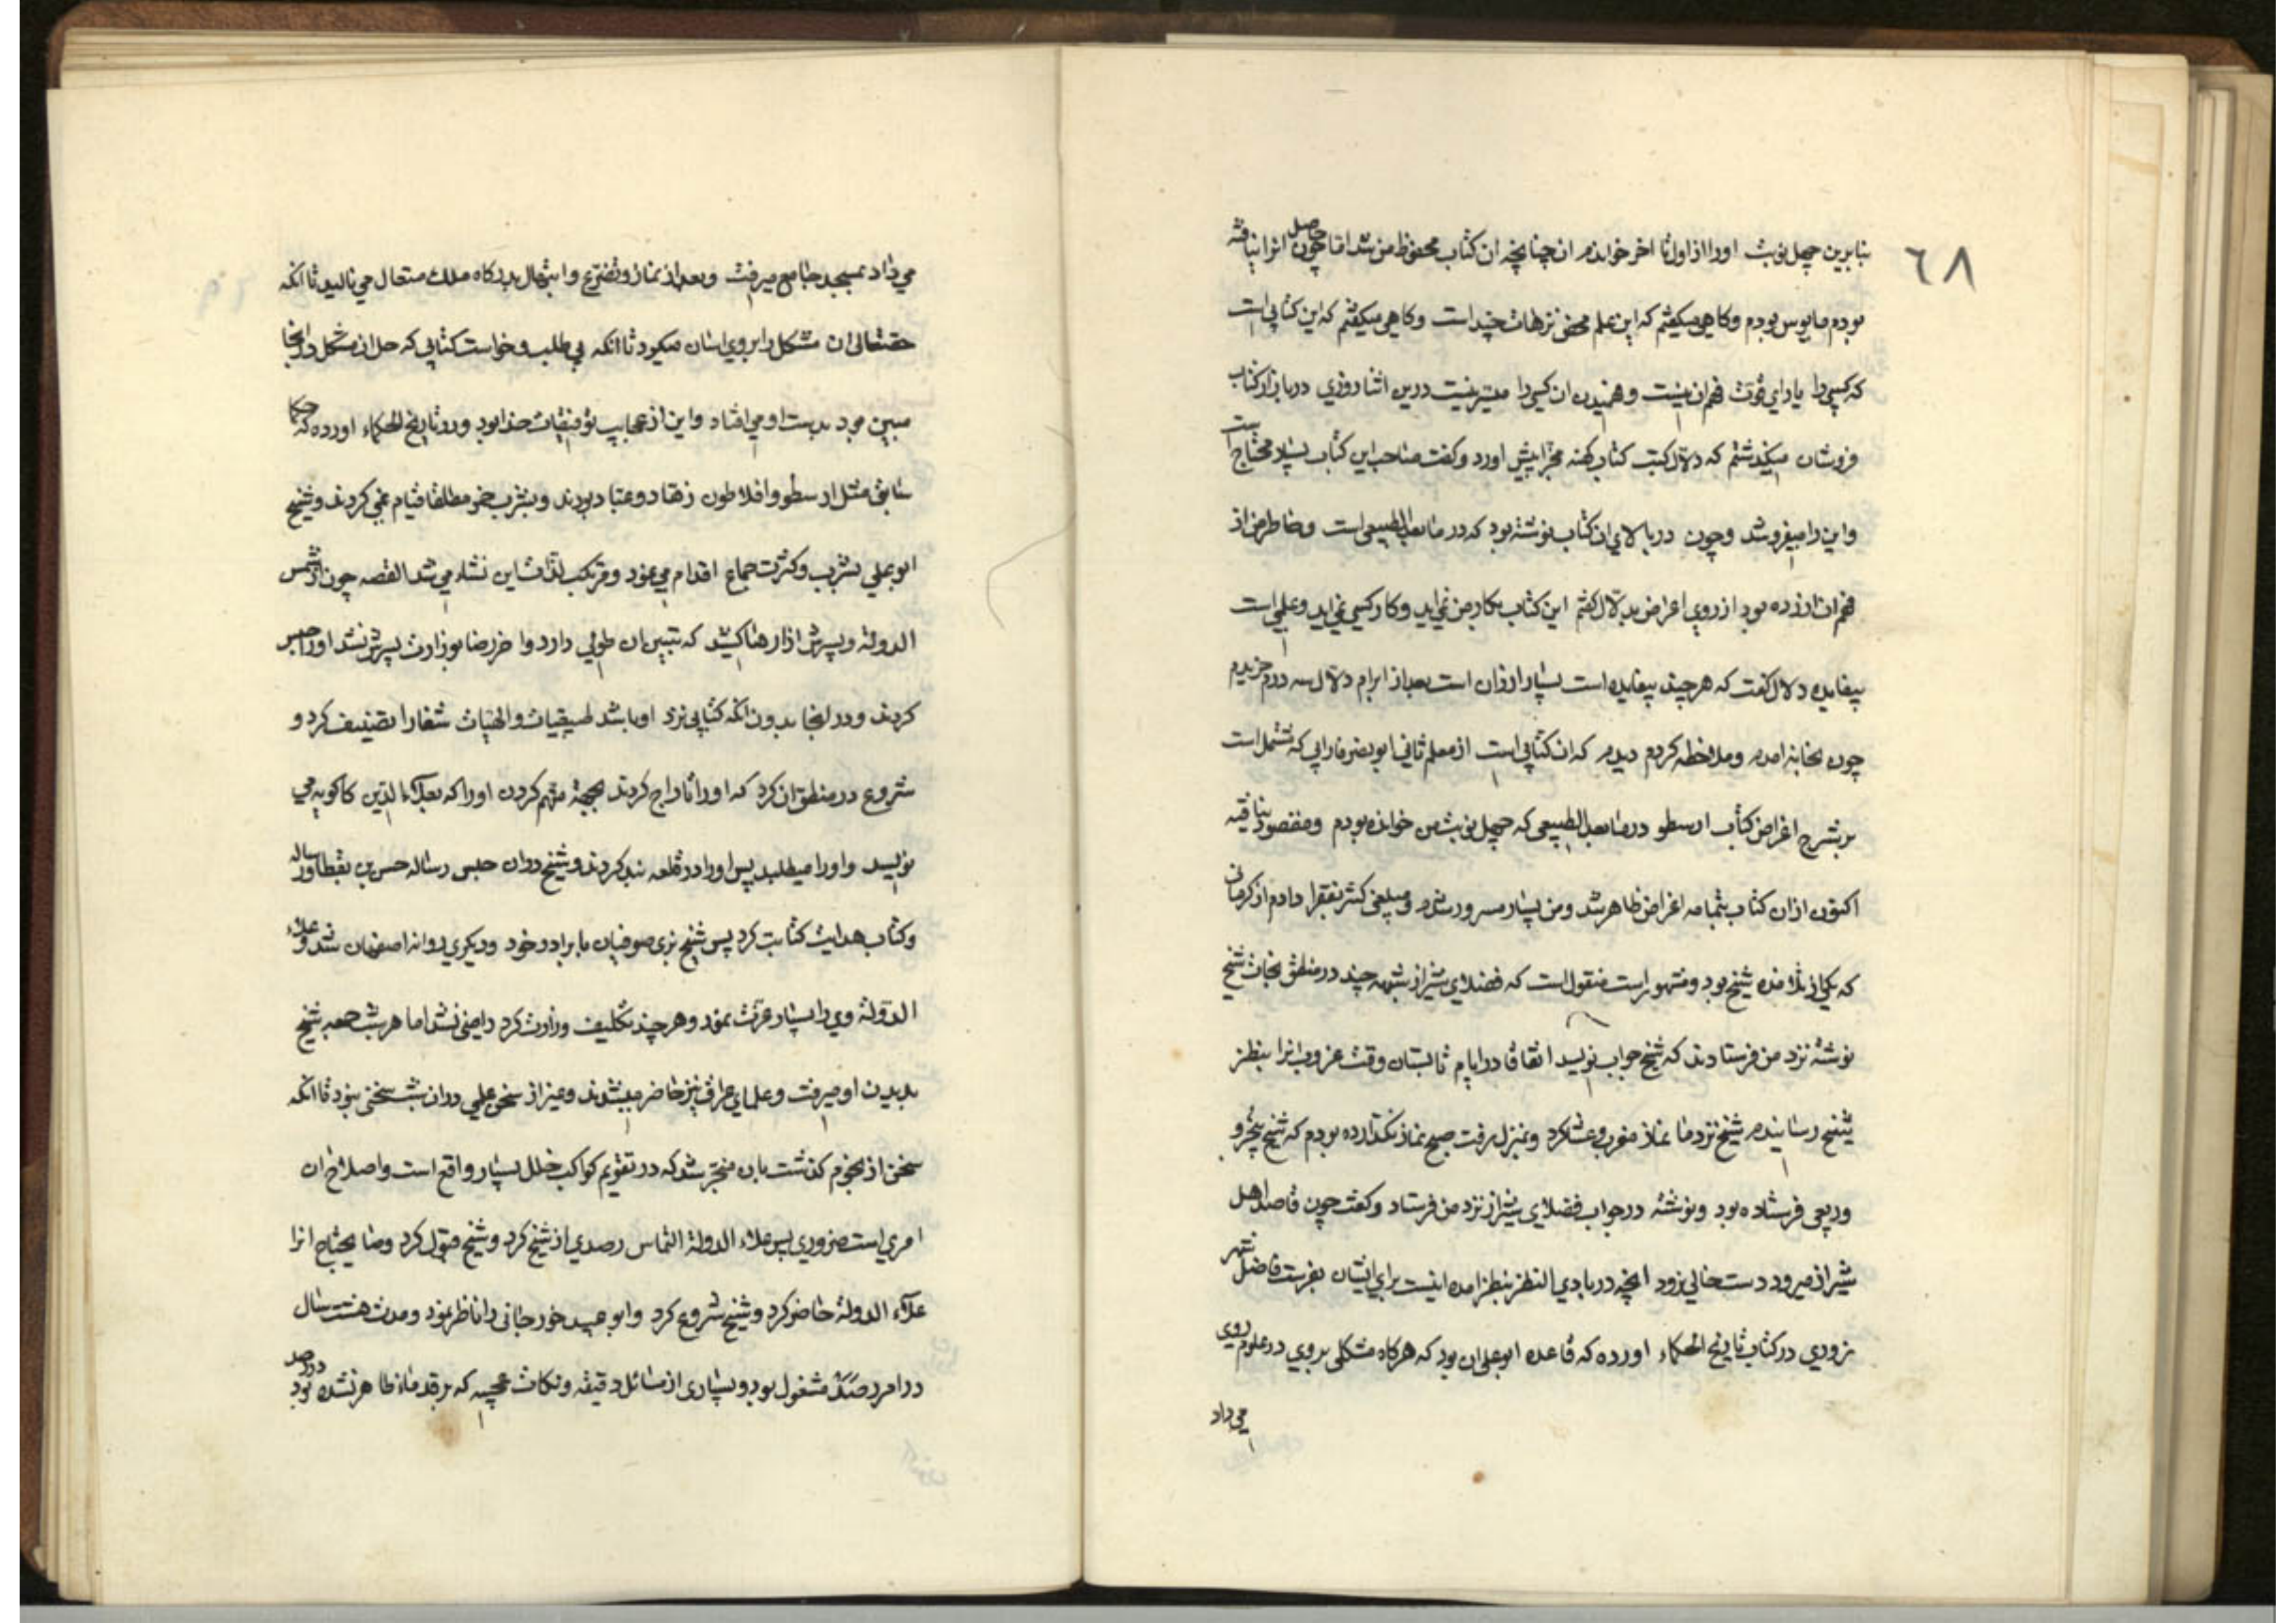 ٦٨
بنابرین چهل نوبت اورا از اول تا اخر خواندم ان چنانچه ان کتاب محفوظ من شد اما چون حاصل انرا نیافته
بودم مایوس بودم وکاهی میکفتم که این علم محض ترهات چند است وکاهی میکفتم که این کتابی است
که کسی را یارای قوت فهم ان نیست وفهمیدن ان کسی را میسر نیست درین اثنا روزی در بازار کتاب
فروشان میکذشتم که دلال کتب کتاب کهنه مجزا پیش اورد وکفت صاحب این کتاب بسیار محتاج است
واین را میفروشد وچون در بالای ان کتاب نوشته بود که در ما بعد الطبیعی است وخاطر من از
فهم ان ازرده بود از روی اعراض بدلال کفتم این کتاب بکار من نمی اید وکار کسی نمی اید وعلمی است
بیفایده دلال کفت که هر چند بیفایده است بسیار ارزان است بعد از ابرام دلال سه درم خریدم
چون بخانه امدم وملاحظه کردم دیدم که ان کتابی است از معلم ثانی ابو نصر فارابی که مشتمل است
بر شرح اغراض کتاب ارسطو در ما بعد الطبیعی که چهل نوبت من خوانده بودم ومقصود نیافته
اکنون ازان کتاب بتمامه اغراض ظاهر شد ومن بسیار مسرور شدم ومبلغی کثیر بفقرا دادم از کرمانی
که یکی از تلامذه شیخ بود ومشهور است منقول است که فضلای شیراز شبهه چند در منطق نجات شیخ
نوشته نزد من فرستادند که شیخ جواب نویسد اتفاقا در ایام تابستان وقت غروب انرا بنظر
شیخ رسانیدم شیخ نزد ما نماز مغرب وعشا کرد وبمنزل رفت صبح نماز نکذارده بودم که شیخ پنجرو
وربعی فرستاده بود ونوشته در جواب فضلای شیراز نزد من فرستاد وکفت چون قاصد اهل
شیراز میرود دست خالی نرود انچه در بادی النظر بنظر امده اینست برای ایشان بفرست فاضل شهر
زوری در کتاب تاریخ الحکماء اورده که قاعده ابو علی ان بود که هرکاه مشکلی بر وی در علوم روی
می داد
می داد بمسجد جامع میرفت وبعد از نماز وتضرع وابتهال بدرکاه ملک متعال می نالید تا انکه
حقتعالی ان مشکل را بر وی اسان میکرد تا انکه بی طلب وخواست کتابی که حل ان مشکل در انجا
مبین بود بدست او می افتاد واین از عجایب توفیقات خدا بود ودر تاریخ الحکماء اورده که حکما
سابق مثل ارسطو وافلاطون زهاد وعباد بودند وبشرب خمر مطلقا قیام نمی کردند وشیخ
ابو علی بشرب وکثرت جماع اقدام می نمود ومرتکب لذات این نشاه می شد القصه چون از شمس
الدولة وپسرش ازارها کشید که تبیین ان طولی دارد واخر رضا بوزارت پسرش نشد اورا حبس
کردند ودر انجا بدون انکه کتابی نزد او باشد طبیعیات والهیات شفا را تصنیف کرد و
شروع در منطق ان کرد که اورا تاراج کردند بجهة متهم کردن اورا که بعلاء الدین کاکویه می
نویسد واورا میطلبد پس اورا در قلعه بند کردند وشیخ دران حبس رساله حسن بن یقظان رساله
وکتاب هدایت کتابت کرد پس شیخ بزی صوفیان با برادر خود ودیکری روانه اصفهان شد وعلاء
الدولة وی را بسیار عزت نمود وهر چند تکلیف وزارت کرد راضی نشد اما هر شب جمعه شیخ
بدیدن او میرفت وعلمای عراق نیز حاضر میشدند وغیر از سخن علمی دران شب سخنی نبود تا انکه
سخن از نجوم کذشت بان منجر شد که در تقویم کواکب خلل بسیار واقع است واصلاح ان
امری است ضروری پس علاء الدولة التماس رصدی از شیخ کرد وشیخ قبول کرد وما یحتاج انرا
علاء الدولة حاضر کرد وشیخ شروع کرد وابو عبید خورجانی را ناظر نمود ومدت هشت سال
در امر رصد مشغول بود وبسیاری از مسائل دقیقه ونکات عجیبه که بر قدما ظاهر نشده بود در رصد